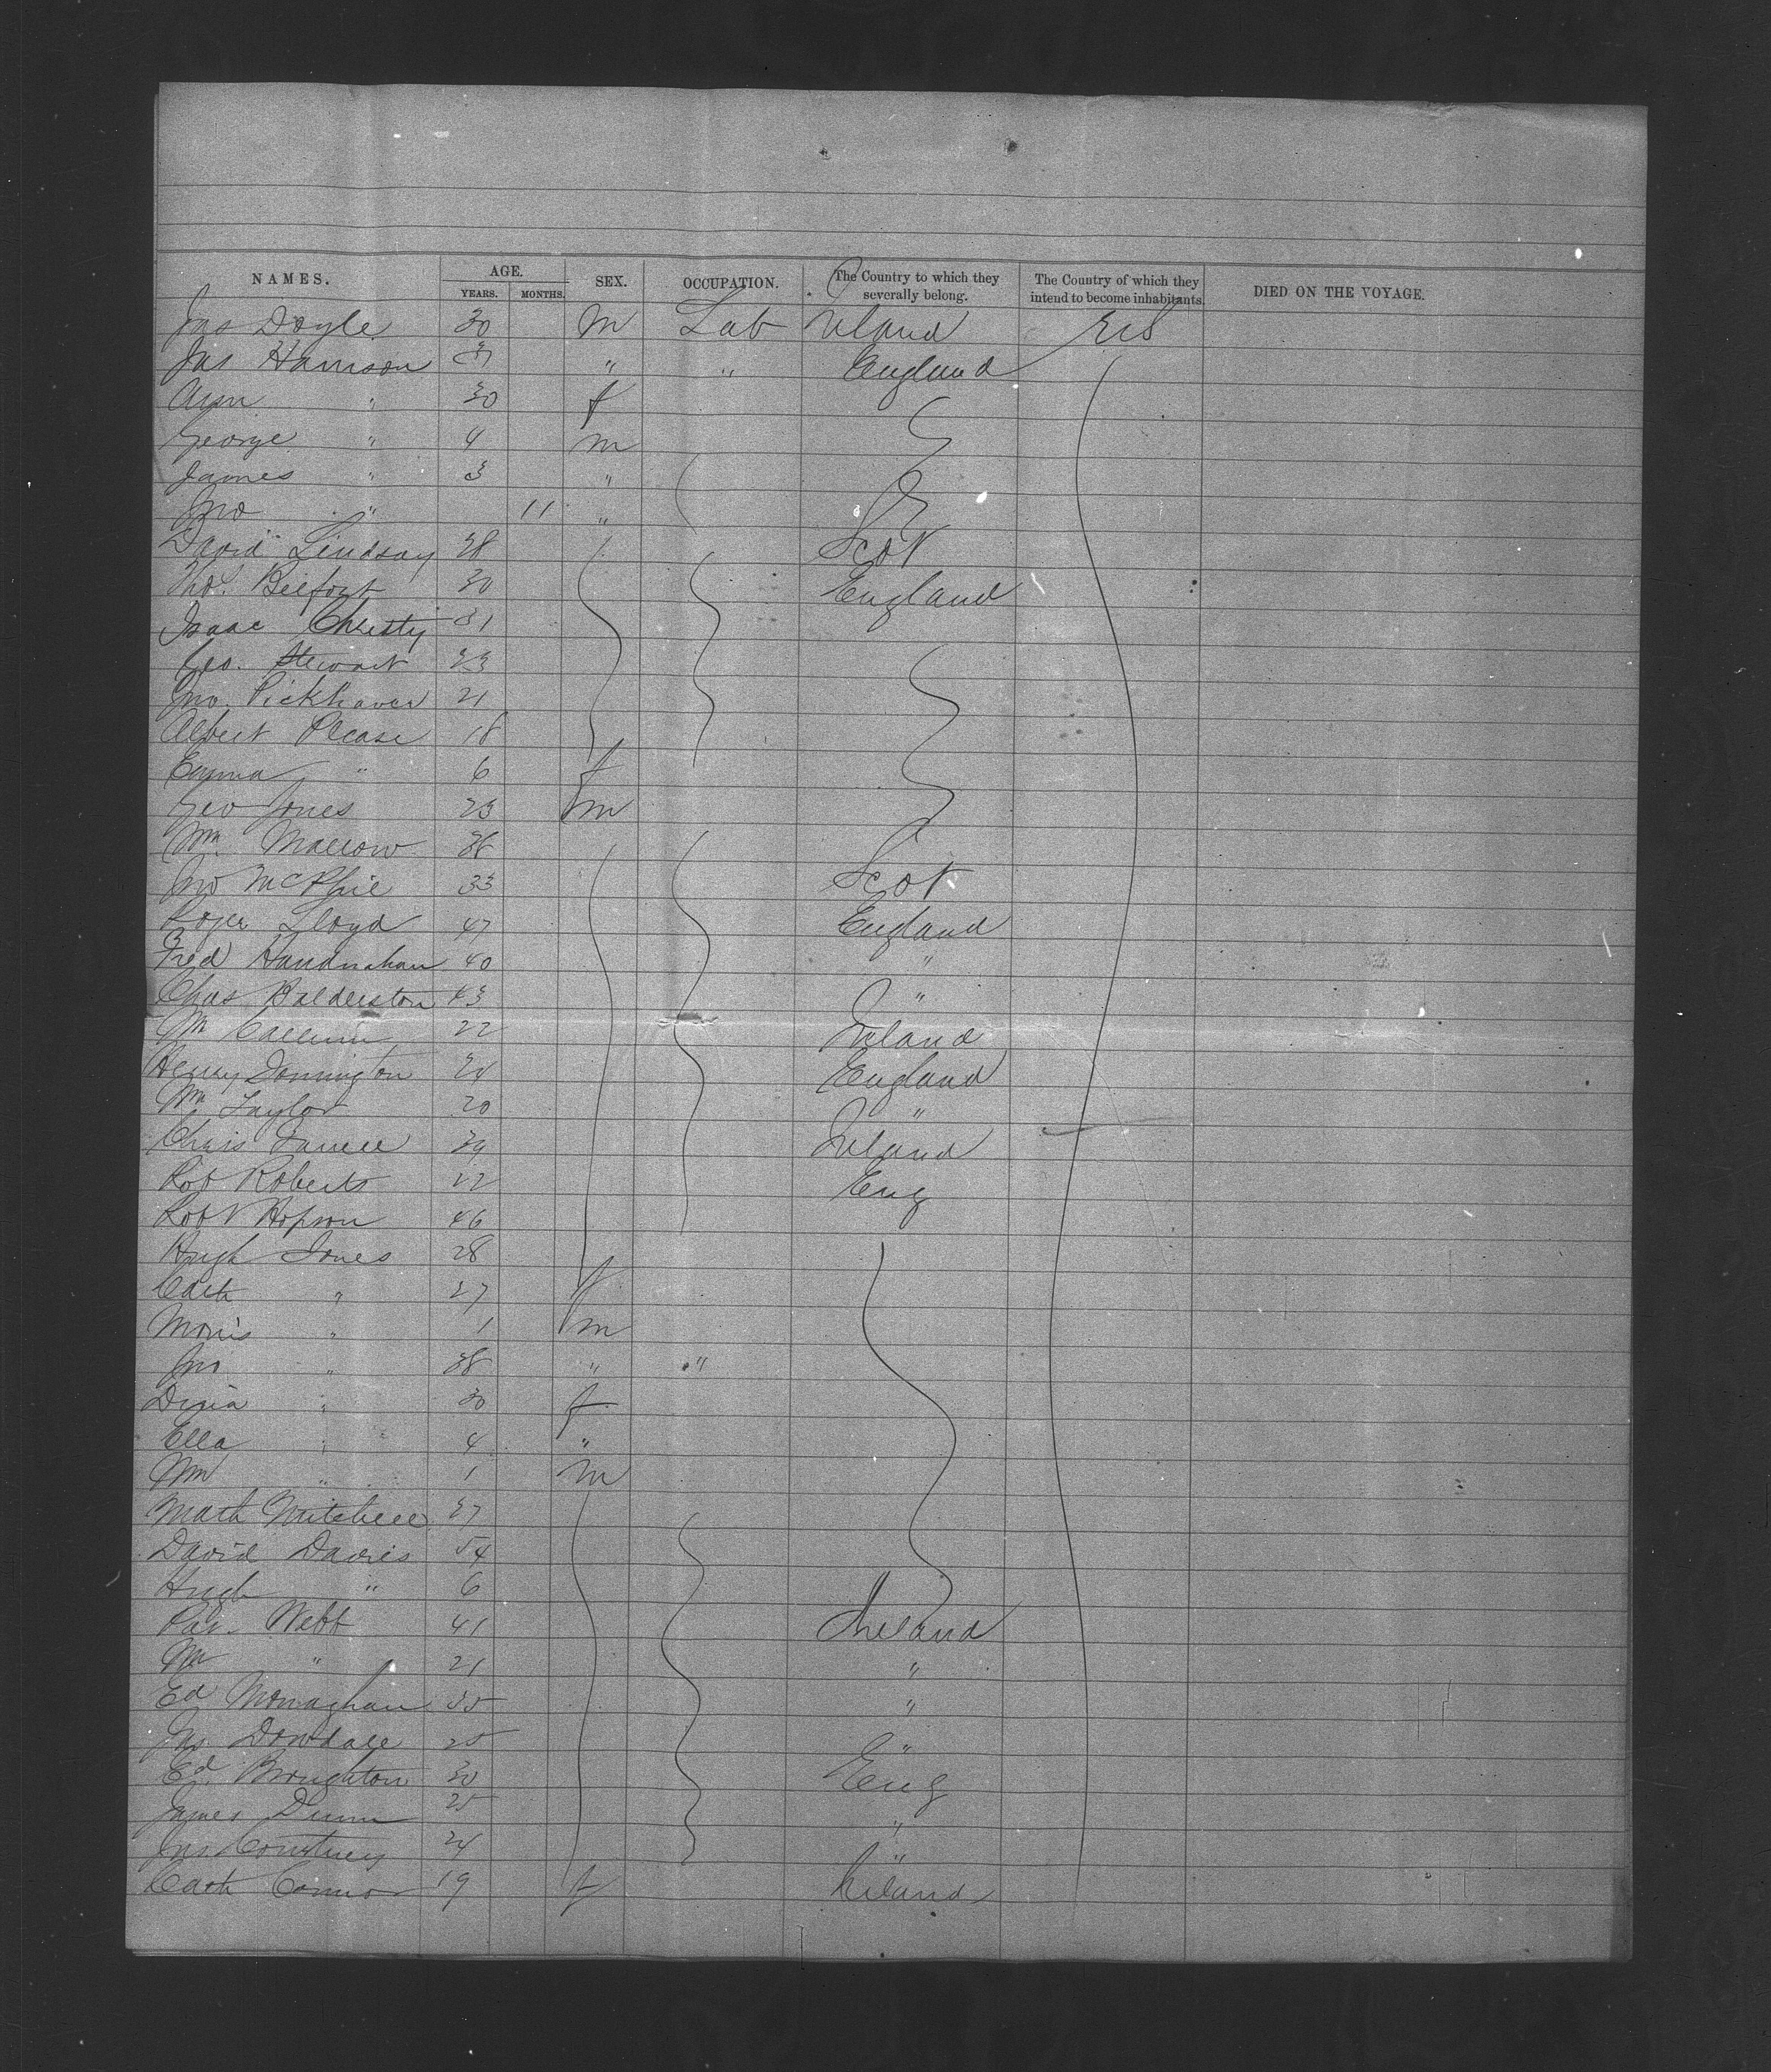 NAMES. AGE. SEX. OCCUPATION. The Country to which they severally belong. The Country of which they intend to become inhabitants. DIED ON THE VOYAGE.
YEARS. MONTHS.
Jas Doyle 30 M Lab Ireland US
Jas Harrison 31 " " England
Ann " 30 f
George " 4 m
James " 3 "
Jno " 11 "
David Lindsay 38 Scot
Tho. Belfort 30 England
Isaac Christy 31
Geo. Stewart 23
Jno. Pickhaver 21
Albert Please 18
Emma " 6 f
Geo Jones 23 m
Wm Marrow 36
Jno McPhie 33 Scot
Roger Lloyd 47 England
Fred 40 "
Chas Balderston 43 "
Wm Callum 22 Ireland
Henry Donnington 24 England
Wm Taylor 20 "
Chris Farrell 39 Ireland
Rob Roberts 22 Eng
Robt Hopson 46
Hugh Jones 28
Cath " 27 f
Morris " 1 m
Jno " 38 " "
Dina " 30 f
Ella " 4 "
Wm " 1 m
Math Mitchell 27
David Davies 54
Hugh " 6
Pat. Webb 41 Ireland
Wm " 21 "
Ed Monaghan 35 "
Jas. Dowdall 25 "
Ed. Broughton 30 Eng
James Dunn 25 "
Jas. Courtney 24 "
Cath Connor 19 f Ireland